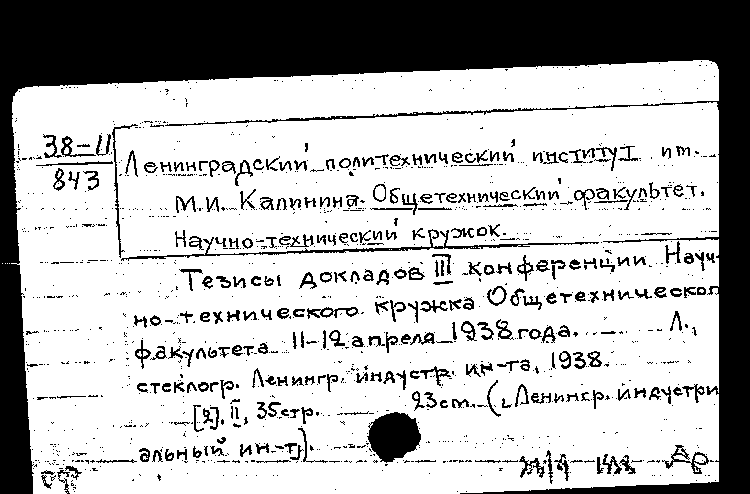 38-11
843
Ленинградский политехнический институт им.
М.И. Калинина. Общетехнический факультет.
Научно-технический кружок.
Тезисы докладов III конференции Науч-
но-технического кружка Общетехнического
факультета 11-12 апреля 1938 года. Л.,
стеклогр. Ленингр. индустр. ин-та, 1938.
[2], II, 35 стр. 23 см. (Ленингр. индустри
альный ин-т).